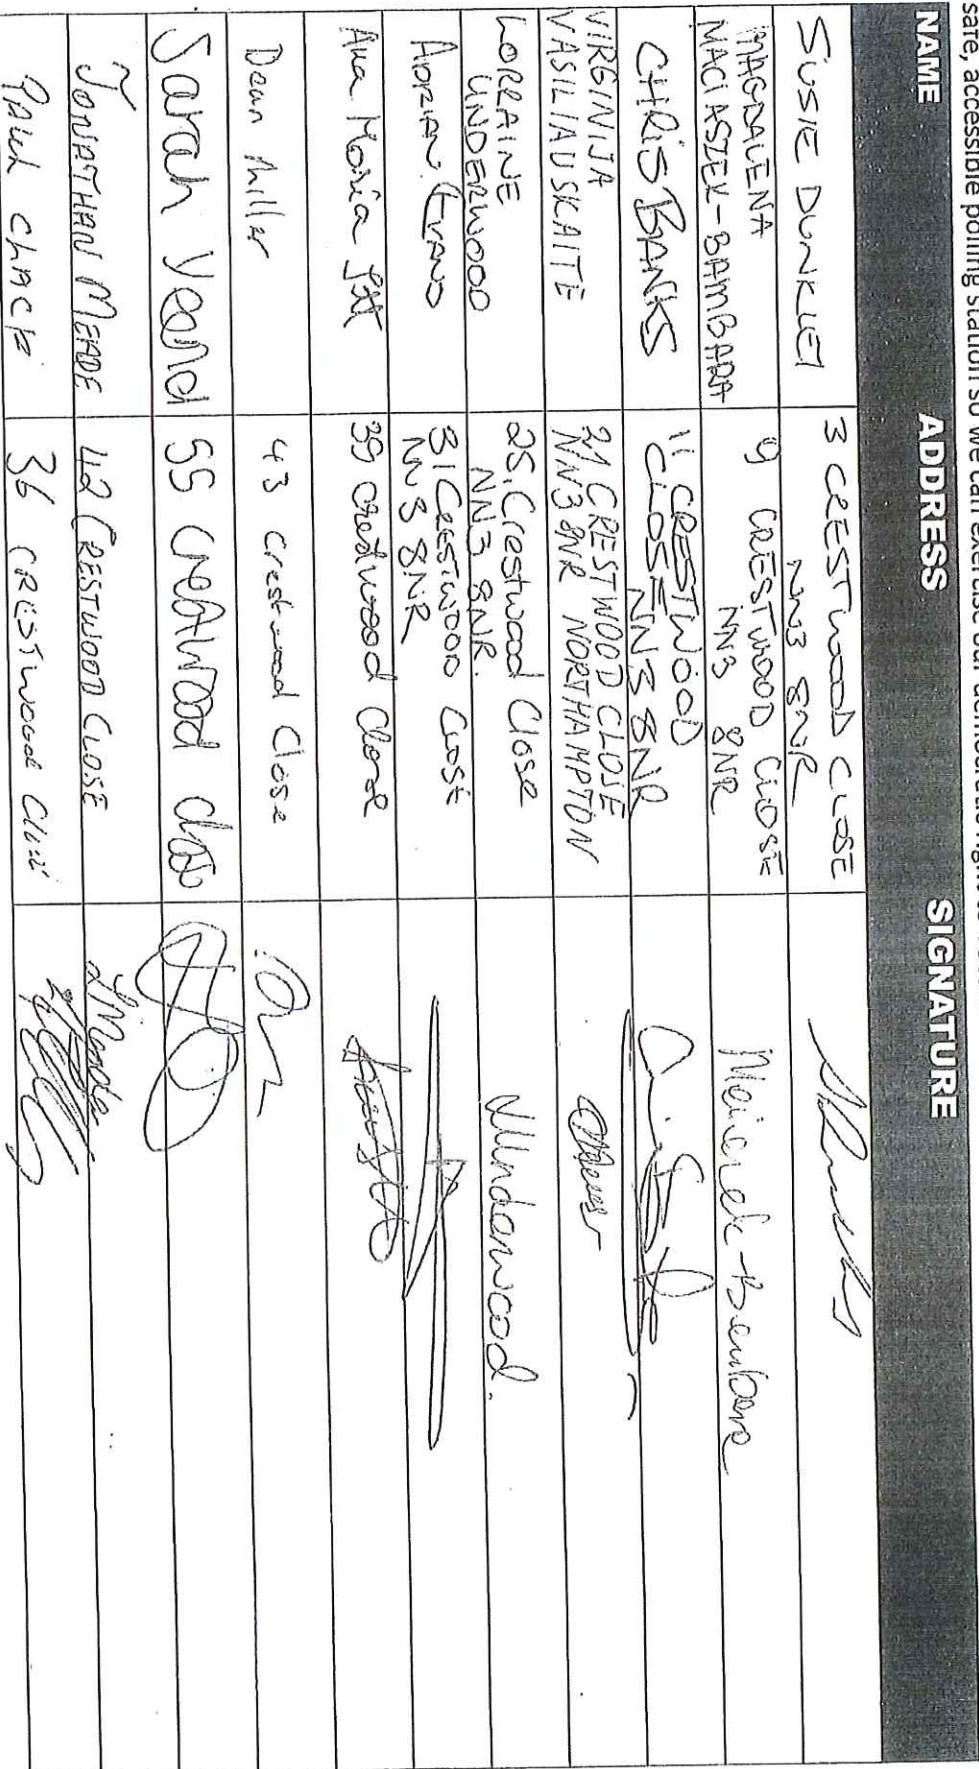 safe, accessible polling station so we can exercise our democratic right
NAME ADDRESS SIGNATURE
SUSIE DUNKLEY
3 CRESTWOOD CLOSE
NN3 8NR
MAGDALENA
MACIASZEK-BAMBARA
9 CRESTWOOD CLOSE
NN3 8NR
CHRIS BANKS
11 CRESTWOOD
CLOSE NN3 8NR
VIRGINIJA
VASILIAUSKAITE
21 CRESTWOOD CLOSE
NN3 8NR NORTHAMPTON
LORRAINE
UNDERWOOD
25, Crestwood Close
NN3 8NR.
LUnderwood.
ADRIAN EVANS
31 CRESTWOOD CLOSE
NN3 8NR
Ana Maria
39 Crestwood Close
Dean Miller
43 crestwood Close
Sarah
55 Crestwood close
JONATHAN MEADE
42 CRESTWOOD CLOSE
JMeade
PAUL
36 CRESTWOOD Close